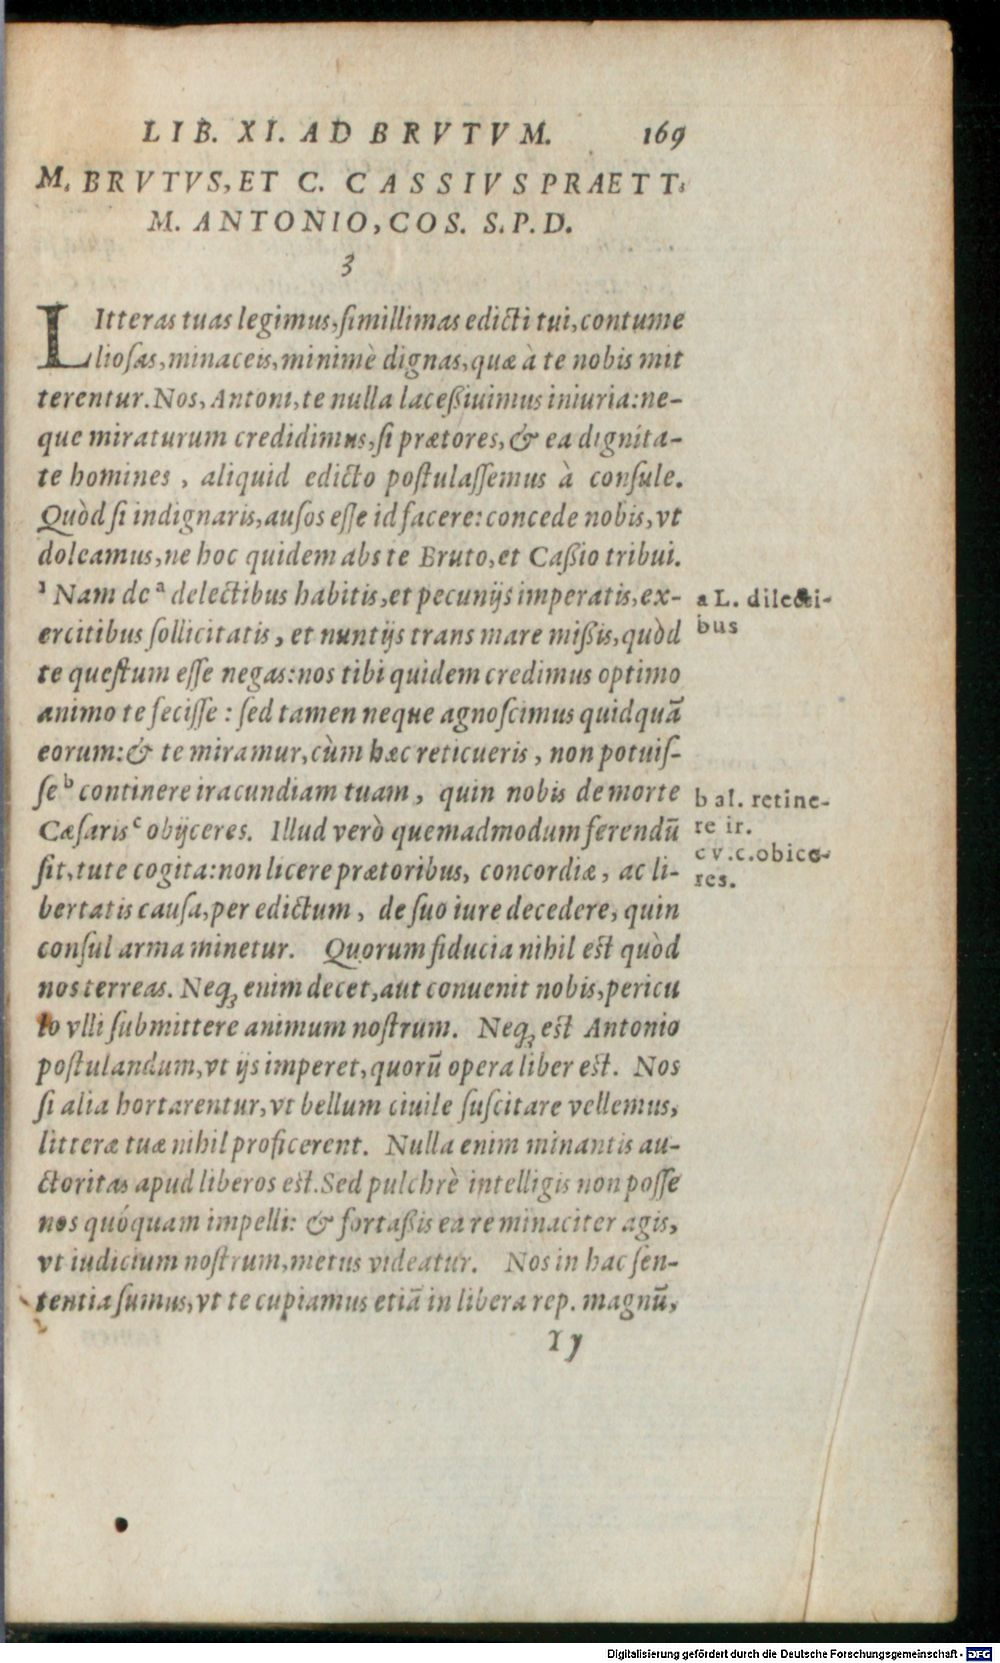 LIB. XI. AD BRVTVM. 169
M. BRVTVS, ET C. CASSIVS PRAETT.
M. ANTONIO, COS. S. P. D.
3
LItteras tuas legimus, simillimas edicti tui, contume
liosas, minaceis, minimè dignas, quæ à te nobis mit
terentur. Nos, Antoni, te nulla laceßiuimus iniuria: ne-
que miraturum credidimus, si prætores, & ea dignita-
te homines, aliquid edicto postulassemus à consule.
Quòd si indignaris, ausos esse id facere: concede nobis, vt
doleamus, ne hoc quidem abs te Bruto, et Caßio tribui.
¹ Nam de ᵃ delectibus habitis, et pecunijs imperatis, ex-
a L. dilecti-
bus
ercitibus sollicitatis, et nuntijs trans mare mißis, quòd
te questum esse negas: nos tibi quidem credimus optimo
animo te fecisse: sed tamen neque agnoscimus quidquā
eorum: & te miramur, cùm hæc reticueris, non potuis-
se ᵇ continere iracundiam tuam, quin nobis de morte
b al. retine-
re ir.
Cæsaris ᶜ obijceres. Illud verò quemadmodum ferendū
c v.c. obice-
res.
sit, tute cogita: non licere prætoribus, concordiæ, ac li-
bertatis causa, per edictum, de suo iure decedere, quin
consul arma minetur. Quorum fiducia nihil est quòd
nos terreas. Neq; enim decet, aut conuenit nobis, pericu
lo vlli submittere animum nostrum. Neq; est Antonio
postulandum, vt ijs imperet, quorū opera liber est. Nos
si alia hortarentur, vt bellum ciuile suscitare vellemus,
litteræ tuæ nihil proficerent. Nulla enim minantis au-
ctoritas apud liberos est. Sed pulchrè intelligis non posse
nos quóquam impelli: & fortaßis ea re minaciter agis,
vt iudicium nostrum, metus videatur. Nos in hac sen-
tentia sumus, vt te cupiamus etiā in libera rep. magnū,
Y ij
Digitalisierung gefördert durch die Deutsche Forschungsgemeinschaft - DFG